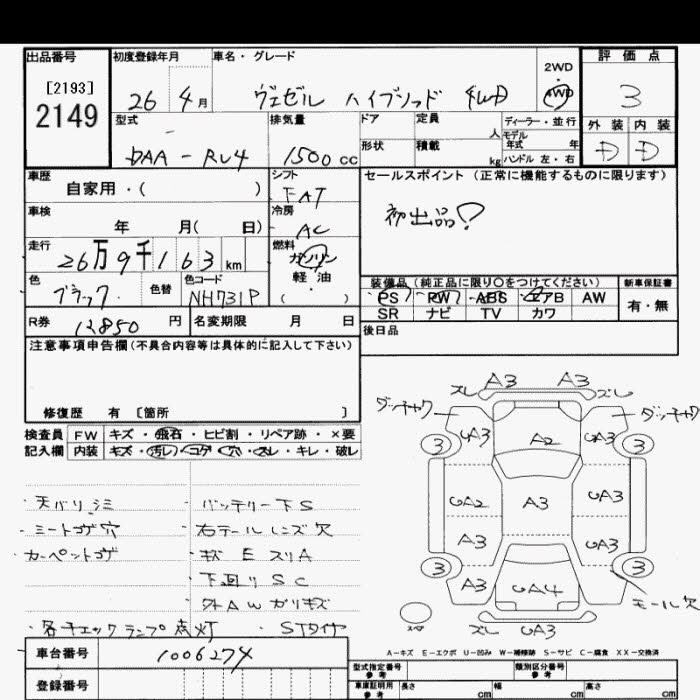 出品番号 初度登録年月 車名・グレード 2WD 4WD 評価点
[2193]
2149 26 4月 ヴェゼル ハイブリッド 4WD 3
型式 排気量 ドア 定員 人 ディーラー・並行 モデル 外装 内装
DAA-RU4 1500cc 形状 積載 kg 年式 年 ハンドル 左・右 D D
車歴 シフト セールスポイント(正常に機能するものに限ります)
自家用・( ) FAT 初出品
車検 冷房
年 月( 日) AC
走行 燃料
26万9千163km ガソリン 軽・油 ( )
色 色替 色コード 装備品(純正品に限り○をつけてください) 新車保証書
ブラック NH731P PS PW ABS エアB AW 有・無
SR ナビ TV カワ
R券 12850円 名変期限 月 日 後日品
注意事項申告欄(不具合内容等は具体的に記入して下さい)
修復歴 有〔箇所 〕
検査員 FW キズ・飛石・ヒビ割・リペア跡・×要
記入欄 内装 キズ・汚レ・コゲ・穴・スレ・キレ・破レ
ズレ A3 A3 ズレ
ダッチャク ダッチャク
3 UA3 A2 UA3 3
UA2 A3 UA3
A3 UA3
3 A3 UA4 3
モール欠
ズレ UA3
・天バリシミ ・バッテリー下S
・ミートコゲ穴 ・右テールレンズ欠
・カーペットコゲ ・キズ E スリA
・下廻りSC
・外AWガリキズ
・各チェックランプ点灯 ・STタイヤ
A-キズ E-エクボ U-凹み W-補修跡 S-サビ C-腐食 XX-交換済
車台番号 1006274 型式指定番号 参考 類別区分番号 参考
登録番号 車庫証明用 参考 長さ cm 幅 cm 高さ cm